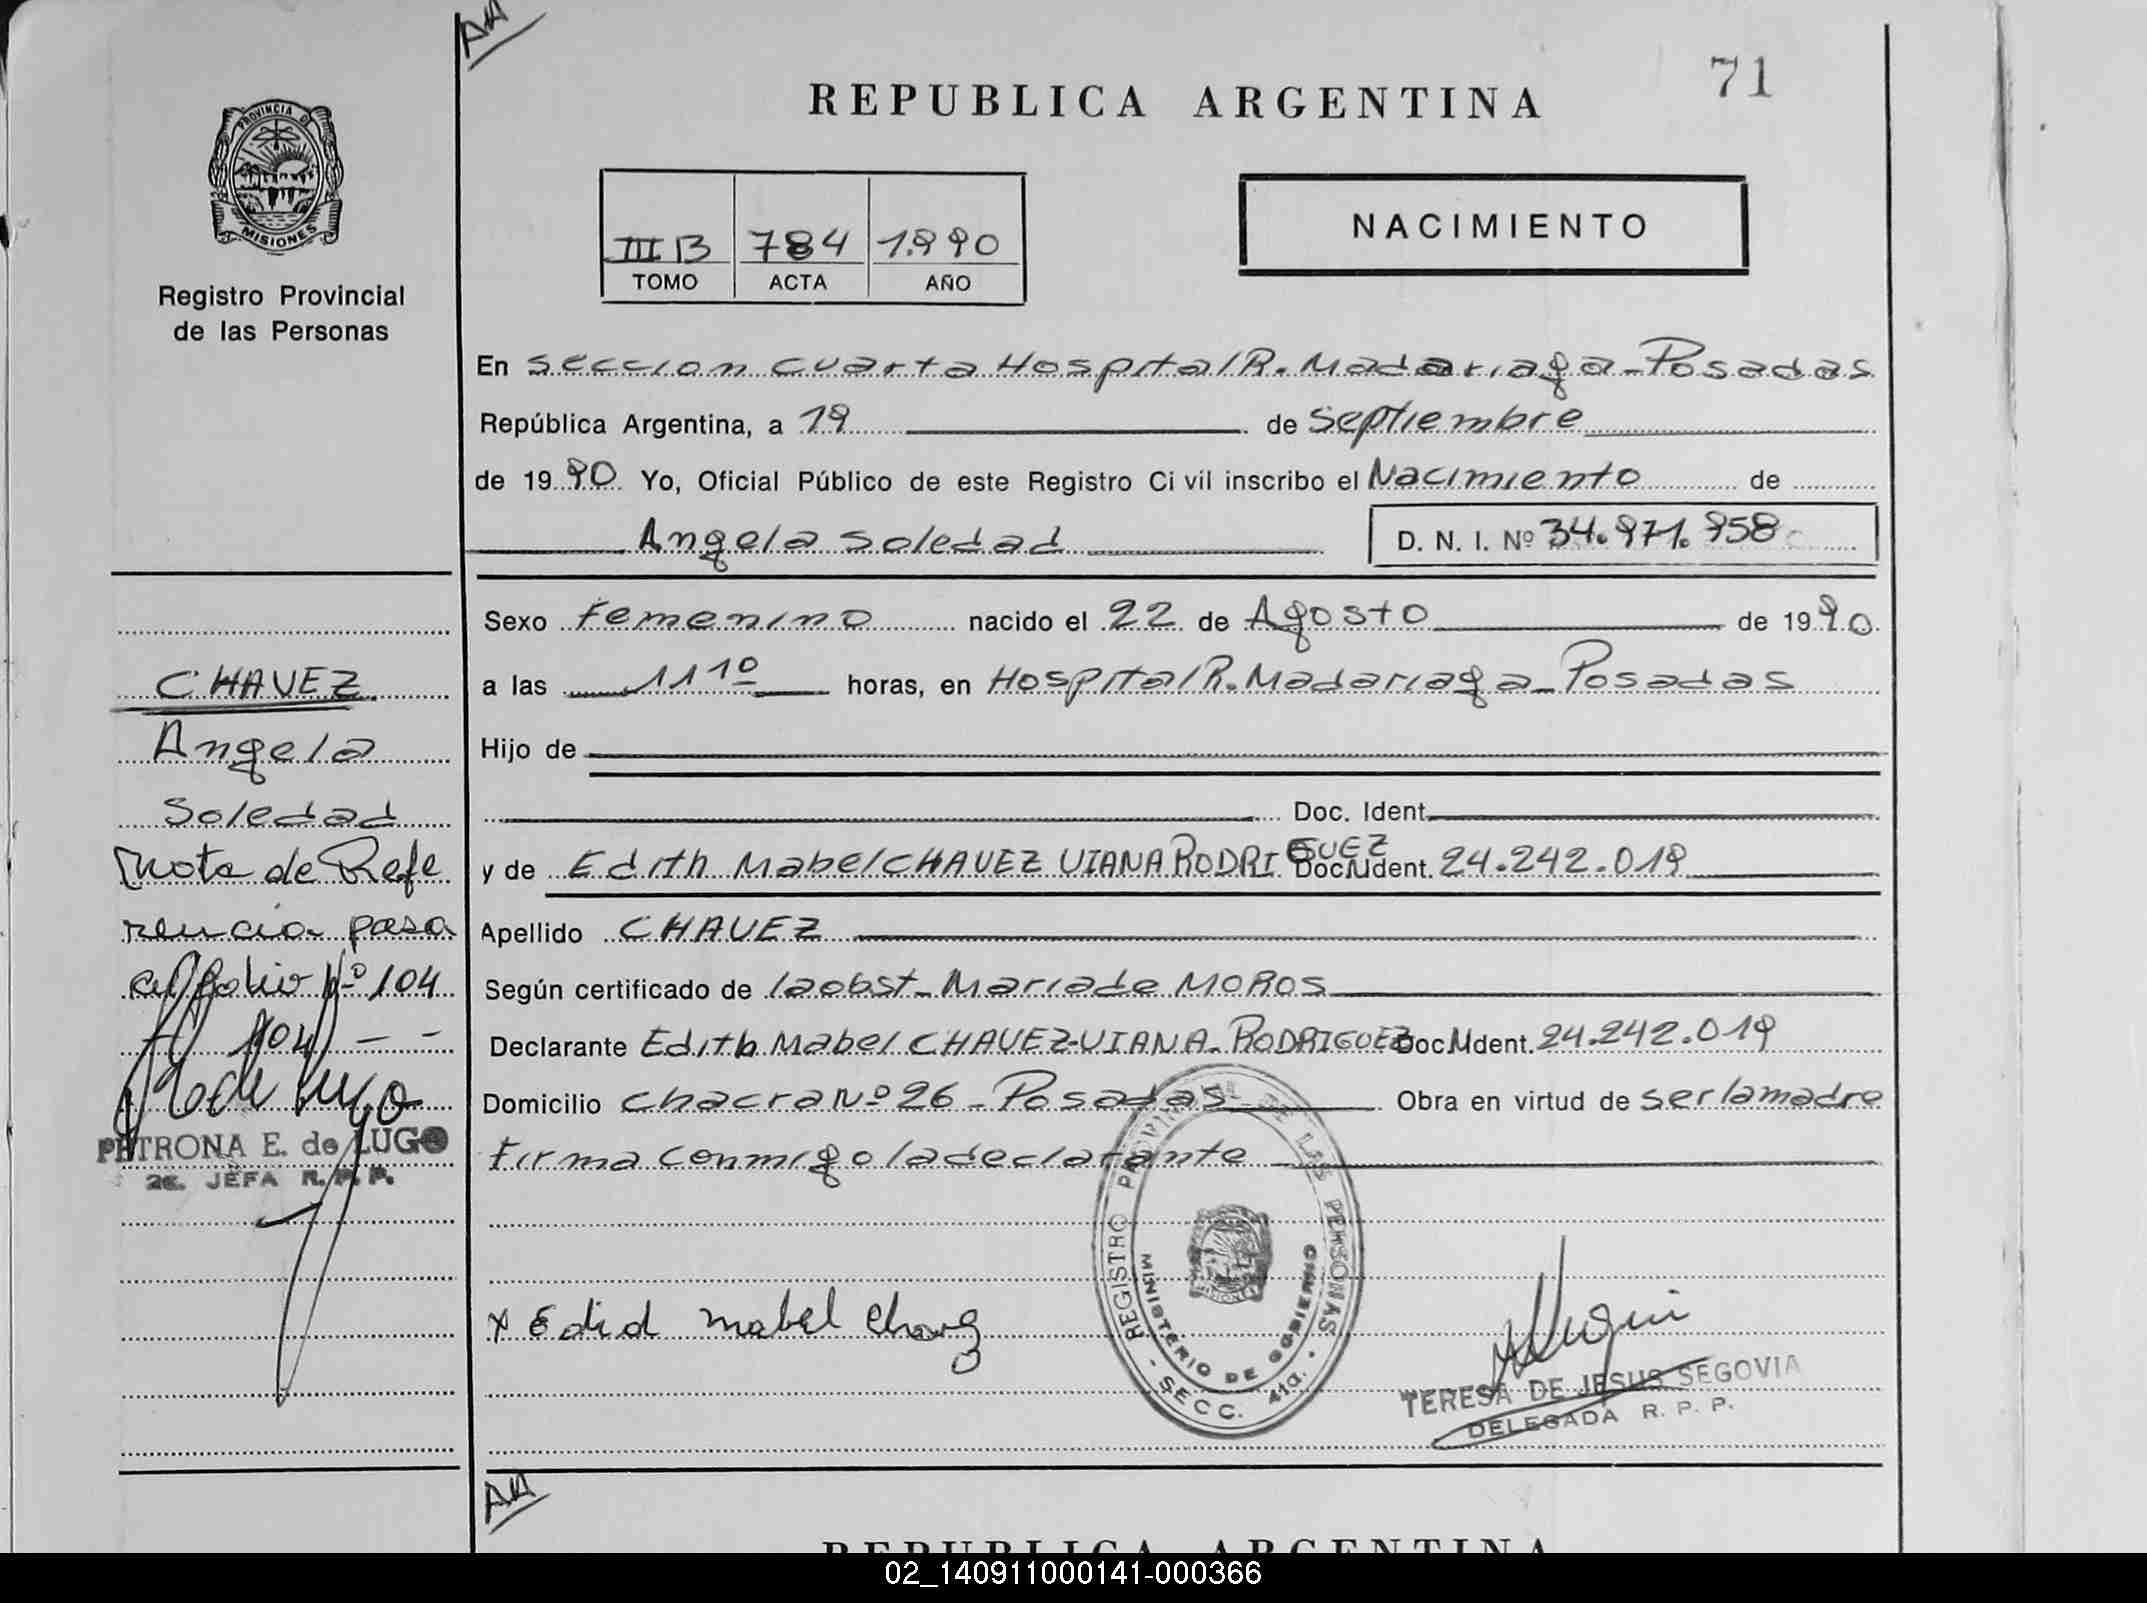 AA
71
REPUBLICA ARGENTINA
PROVINCIA D
MISIONES
Registro Provincial
de las Personas
III B 784 1.990
TOMO ACTA AÑO
NACIMIENTO
En Seccion Cuarta Hospital R. Madariaga - Posadas
República Argentina, a 19 de Septiembre
de 1990 Yo, Oficial Público de este Registro Civil inscribo el Nacimiento de
Angela Soledad
D. N. I. Nº 34.971.958
Sexo Femenino nacido el 22 de Agosto de 1990
a las 11 10 horas, en Hospital R. Madariaga - Posadas
Hijo de
Doc. Ident.
y de Edith Mabel CHAVEZ VIANA RODRIGUEZ Doc. Ident. 24.242.019
Apellido CHAVEZ
Según certificado de la obst - Maria de MOROS
Declarante Edith Mabel CHAVEZ-VIANA-RODRIGUEZ Doc. Ident. 24.242.019
Domicilio Chacra Nº 26 - Posadas Obra en virtud de ser la madre
Firma conmigo la declarante
CHAVEZ
Angela
Soledad
Nota de Refe
rencia pasa
al folio Nº 104
104 - -
PETRONA E. de LUGO
JEFA R. P. P.
x Edid mabel Chavez
REGISTRO PROVINCIAL DE LAS PERSONAS
MINISTERIO DE GOBIERNO
- SECC. 41a. -
TERESA DE JESUS SEGOVIA
DELEGADA R. P. P.
AA
REPUBLICA ARGENTINA
02_140911000141-000366